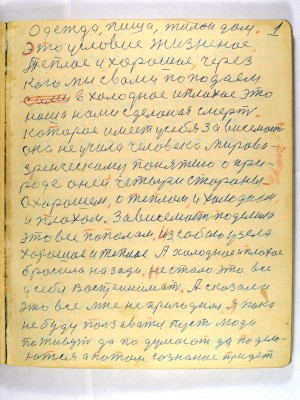 Одежда, пища, жилой дом. 1
Это условие жизненое
Теплое и хорошое, через
кого мы свами попадаем
в холодное и плохое это
наша нами сделаная смерть.
Которое имеет усебя Зависемост
она не учила человека мирово-
зренческому понятию о при-
роде о ней четыри стороны
О хорошем, о теплом и холодном
и плохом. Зависемост поделила
это все пополам, из собою узела
хорошое и теплое. А холодное и плохое
бросила на зади, не стала это все
усебя востринимат. А сказала
это все мне не пригодная. Я пока
не буду ползавати пуст люди
поживут да подумают да подело-
ются а потом сознание придет